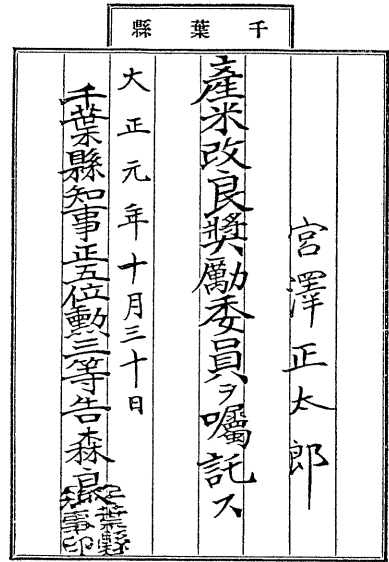 千葉縣
宮澤正太郎
產米改良奬勵委員ヲ囑託ス
大正元年十月三十日
千葉縣知事正五位勳三等告森良
千葉縣
知事印